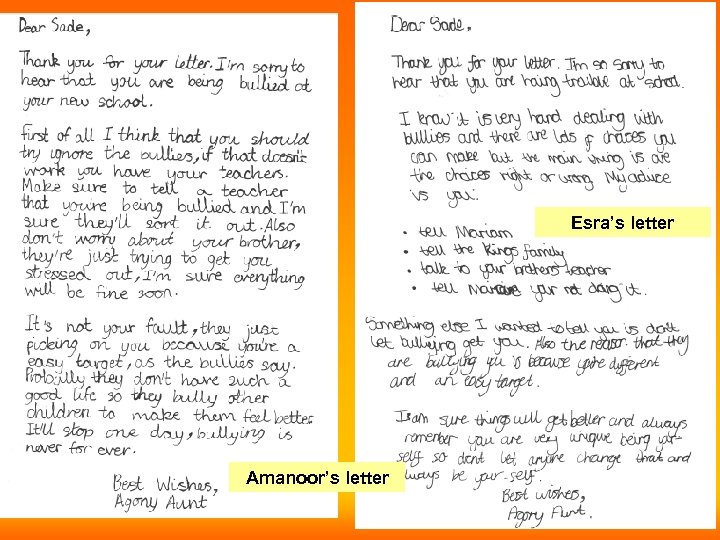 Dear Sade,
Thank you for your letter. I'm sorry to
hear that you are being bullied at
your new school.
first of all I think that you should
try ignore the bullies, if that doesn't
work you have your teachers.
Make sure to tell a teacher
that you're being bullied and I'm
sure they'll sort it out. Also
don't worry about your brother,
they're just trying to get you
stressed out, I'm sure everything
will be fine soon.
It's not your fault, they just
picking on you because you're a
easy target, as the bullies say.
Probilly they don't have such a
good life so they bully other
children to make them feel better.
It'll stop one day, bullying is
never for ever.
Best Wishes,
Agony Aunt
Amanoor's letter
Dear Sade,
Thank you for your letter. I'm so sorry to
hear that you are having trouble at school.
I know it is very hard dealing with
bullies and there are lots of choices you
can make but the main thing is are
the choices right or wrong. My advice
is you:
Esra's letter
• tell Mariam
• tell the Kings family
• talk to your brothers teacher
• tell your not doing it.
Something else I wanted to tell you is don't
let bullying get you. Also the reason that they
are bullying you is because you're different
and an easy target.
I am sure things will get better and always
remember you are very unique being your-
self so dont let anyone change that and
always be your-self.
Best wishes,
Agony Aunt.